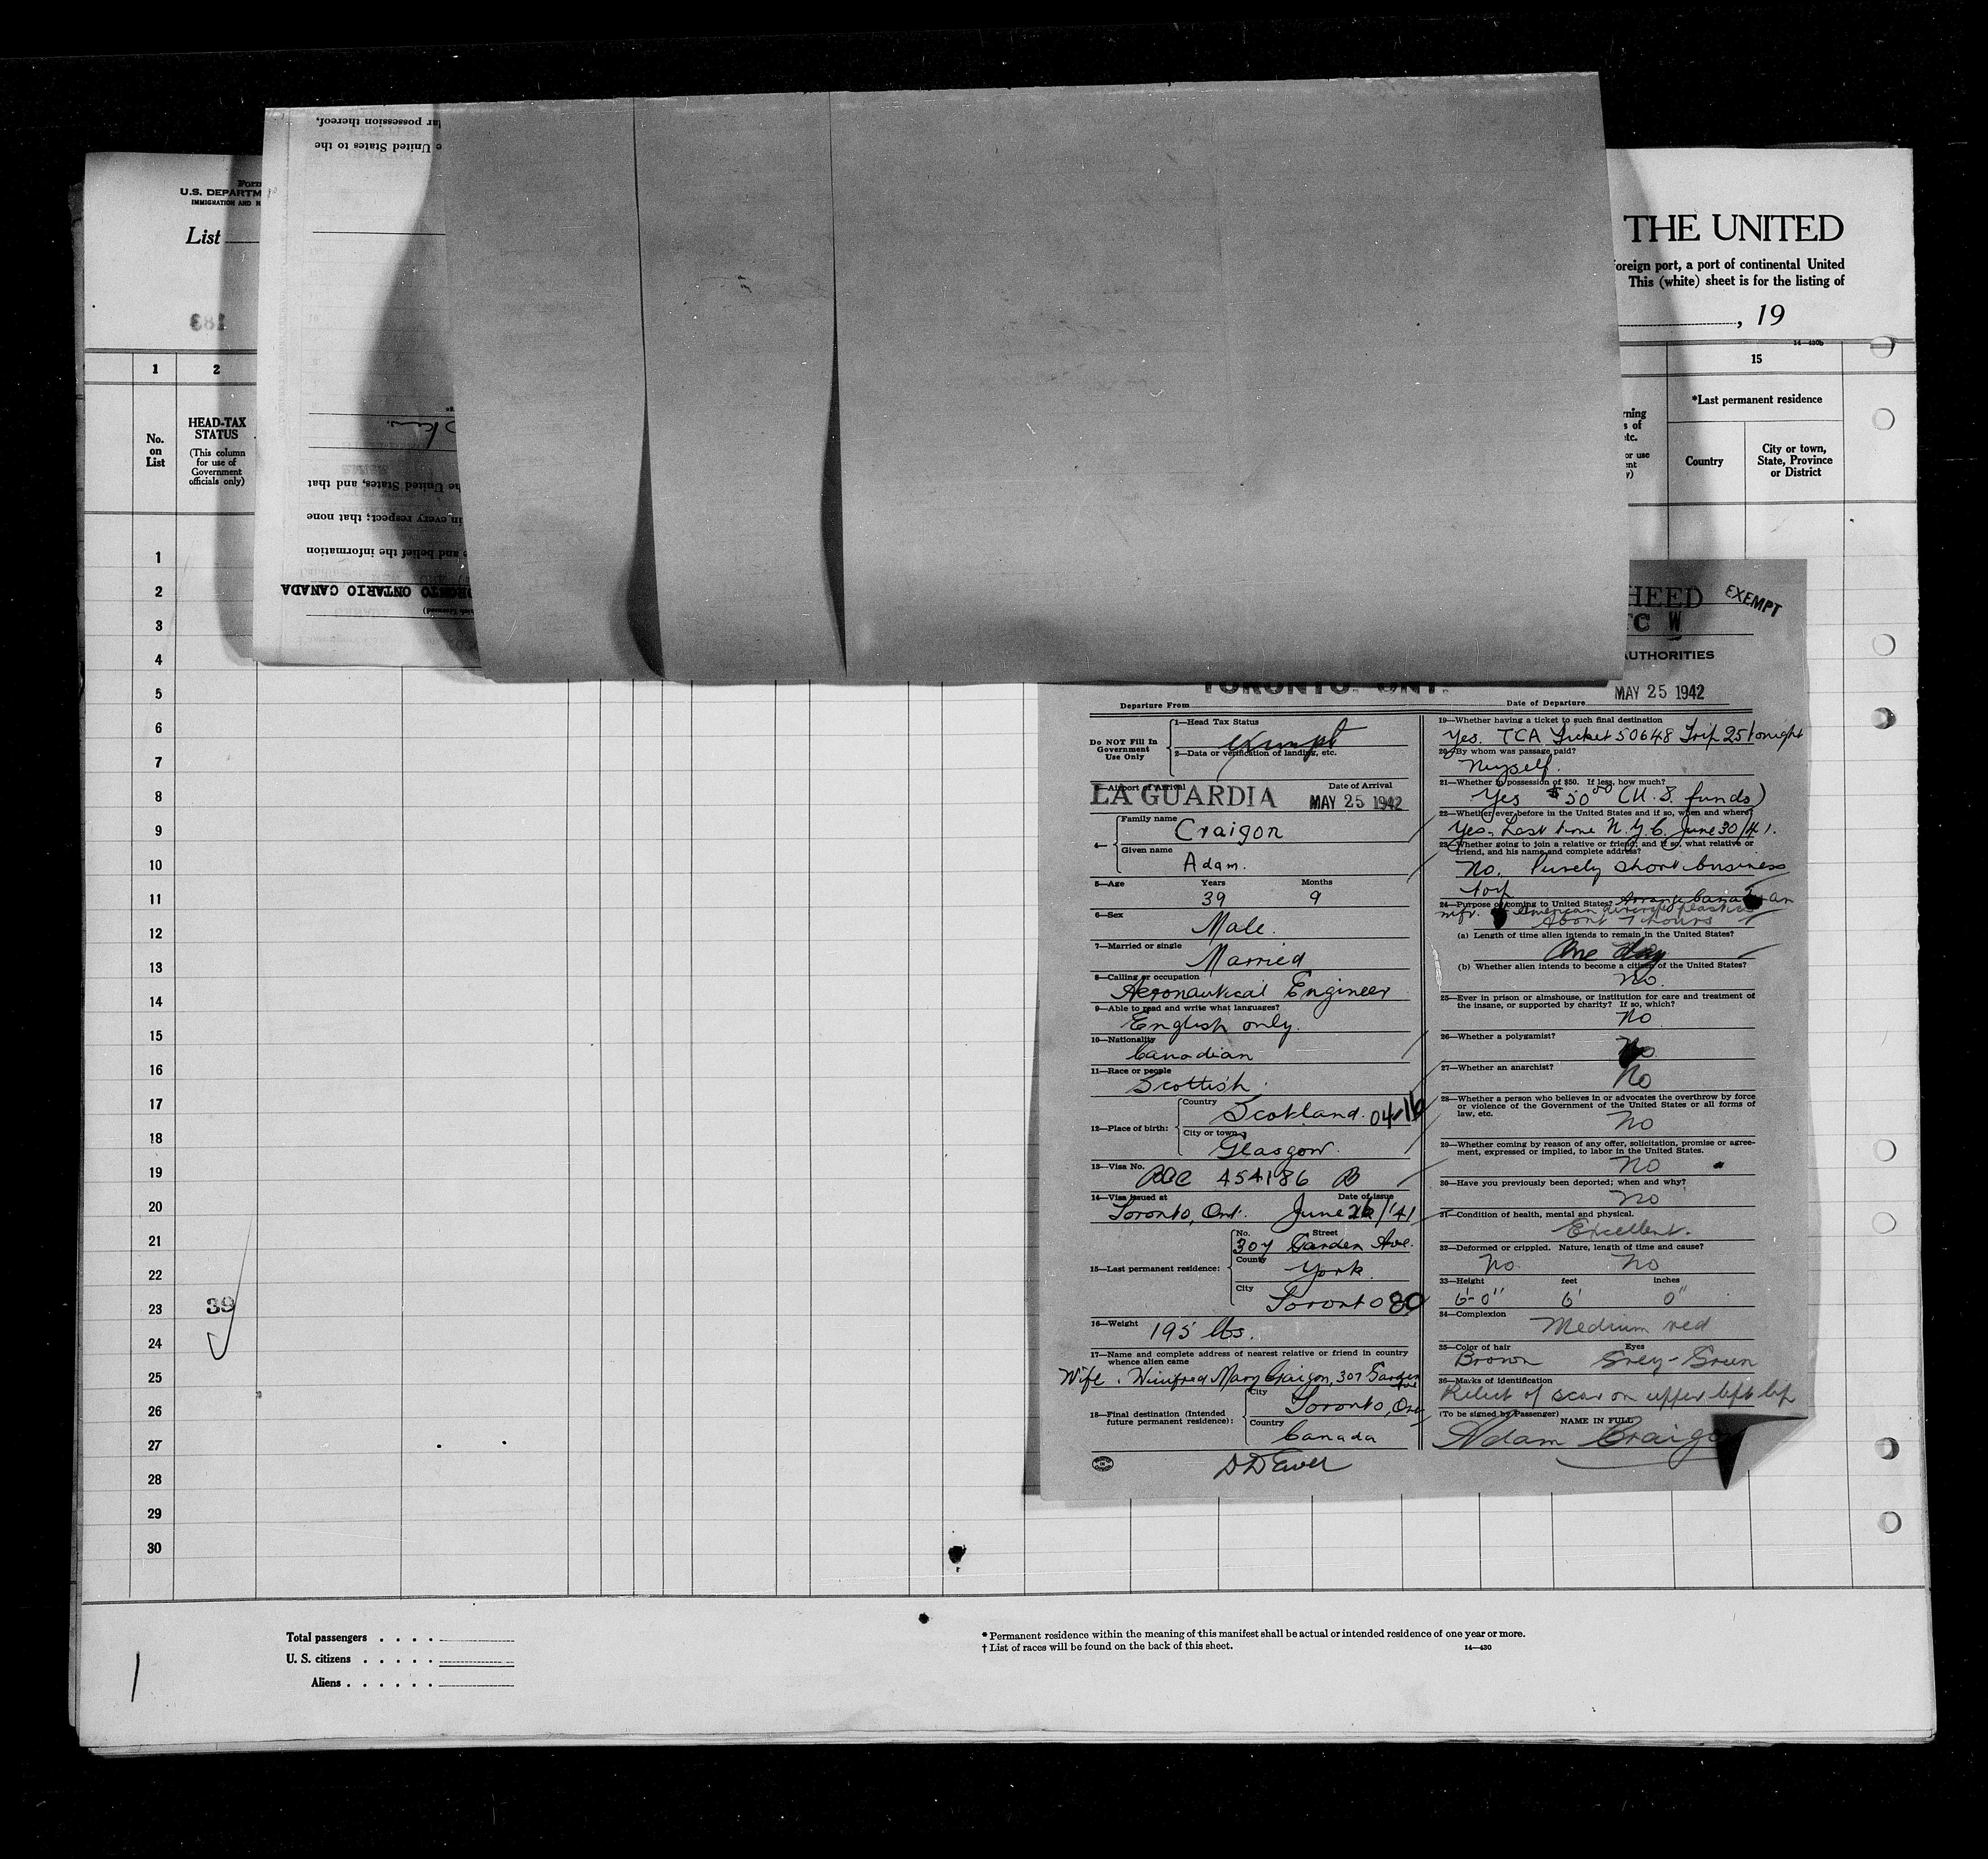 Form
U.S. DEPARTM
IMMIGRATION AND N
List
183
THE UNITED
foreign port, a port of continental United
This (white) sheet is for the listing of
, 19
14—430b
1
2
15
No.
on
List
HEAD-TAX
STATUS
(This column
for use of
Government
officials only)
*Last permanent residence
Country
City or town,
State, Province
or District
rning
s of
etc.
or use
ent
y)
lar possession thereof,
e United States to the
he United States, and that
in every respect; that none
e and belief the information
ORONTO ONTARIO CANADA
1
2
3
4
5
6
7
8
9
10
11
12
13
14
15
16
17
18
19
20
21
22
23
39
24
25
26
27
28
29
30
HEED
EXEMPT
TC W
AUTHORITIES
TORONTO. ONT.
MAY 25 1942
Departure From
Date of Departure
Do NOT Fill In
Government
Use Only
1—Head Tax Status
exempt
2—Data or verification of landing, etc.
3—Airport of Arrival
Date of Arrival
LA GUARDIA MAY 25 1942
4—
Family name
Craigon
Given name
Adam.
5—Age Years Months
39 9
6—Sex
Male.
7—Married or single
Married
8—Calling or occupation
Aeronautical Engineer
9—Able to read and write what languages?
English only.
10—Nationality
Canadian
11—Race or people
Scottish.
12—Place of birth:
Country
Scotland. 04-16
City or town
Glasgow.
13—Visa No.
454186 B
14—Visa issued at Date of issue
Toronto, Ont. June 26/'41
15—Last permanent residence:
No. Street
307 Garden Ave.
County
York.
City
Toronto 80
16—Weight
195 lbs.
17—Name and complete address of nearest relative or friend in country
whence alien came
Wife. Winifred Mary Craigon, 307 Garden
Ave
18—Final destination (Intended
future permanent residence):
City
Toronto, Ont
Country
Canada
19—Whether having a ticket to such final destination
Yes. TCA Ticket 50648 Trip 25 tonight
20—By whom was passage paid?
Myself.
21—Whether in possession of $50. If less, how much?
Yes $50.00 (U.S. funds)
22—Whether ever before in the United States and if so, when and where?
Yes. Last time N.Y.C. June 30/41.
23—Whether going to join a relative or friend, and if so, what relative or
friend, and his name and complete address?
No. Purely short business
trip
24—Purpose of coming to United States? Arrange Canadian
mfr. American aircraft plastics
About 7 hours
(a) Length of time alien intends to remain in the United States?
One day
(b) Whether alien intends to become a citizen of the United States?
No.
25—Ever in prison or almshouse, or institution for care and treatment of
the insane, or supported by charity? If so, which?
No
26—Whether a polygamist?
No
27—Whether an anarchist?
No
28—Whether a person who believes in or advocates the overthrow by force
or violence of the Government of the United States or all forms of
law, etc.
No
29—Whether coming by reason of any offer, solicitation, promise or agree-
ment, expressed or implied, to labor in the United States.
No
30—Have you previously been deported; when and why?
No
31—Condition of health, mental and physical.
Excellent.
32—Deformed or crippled. Nature, length of time and cause?
No. No
33—Height feet inches
6'-0" 6' 0"
34—Complexion
Medium red
35—Color of hair Eyes
Brown Grey-Green
36—Marks of identification
Relict of scar on upper left lip
(To be signed by Passenger) NAME IN FULL
Adam Craigon
Total passengers . . . .
U. S. citizens . . . . .
Aliens . . . . . .
* Permanent residence within the meaning of this manifest shall be actual or intended residence of one year or more.
† List of races will be found on the back of this sheet.
14—430